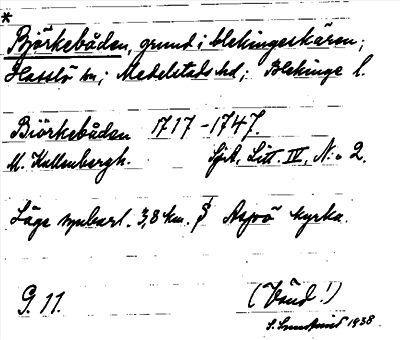 *
Björkebåden, grund i blekingeskären;
Hasslö sn; Medelstads hd; Blekinge l.
Biörkebåden 1717-1747.
M. Kallenbergh. Sjök. Litt. IV, N:o 2.
Läge synbarl. 3,8 km. S Aspö kyrka.
G. 11. (Vänd!)
1938